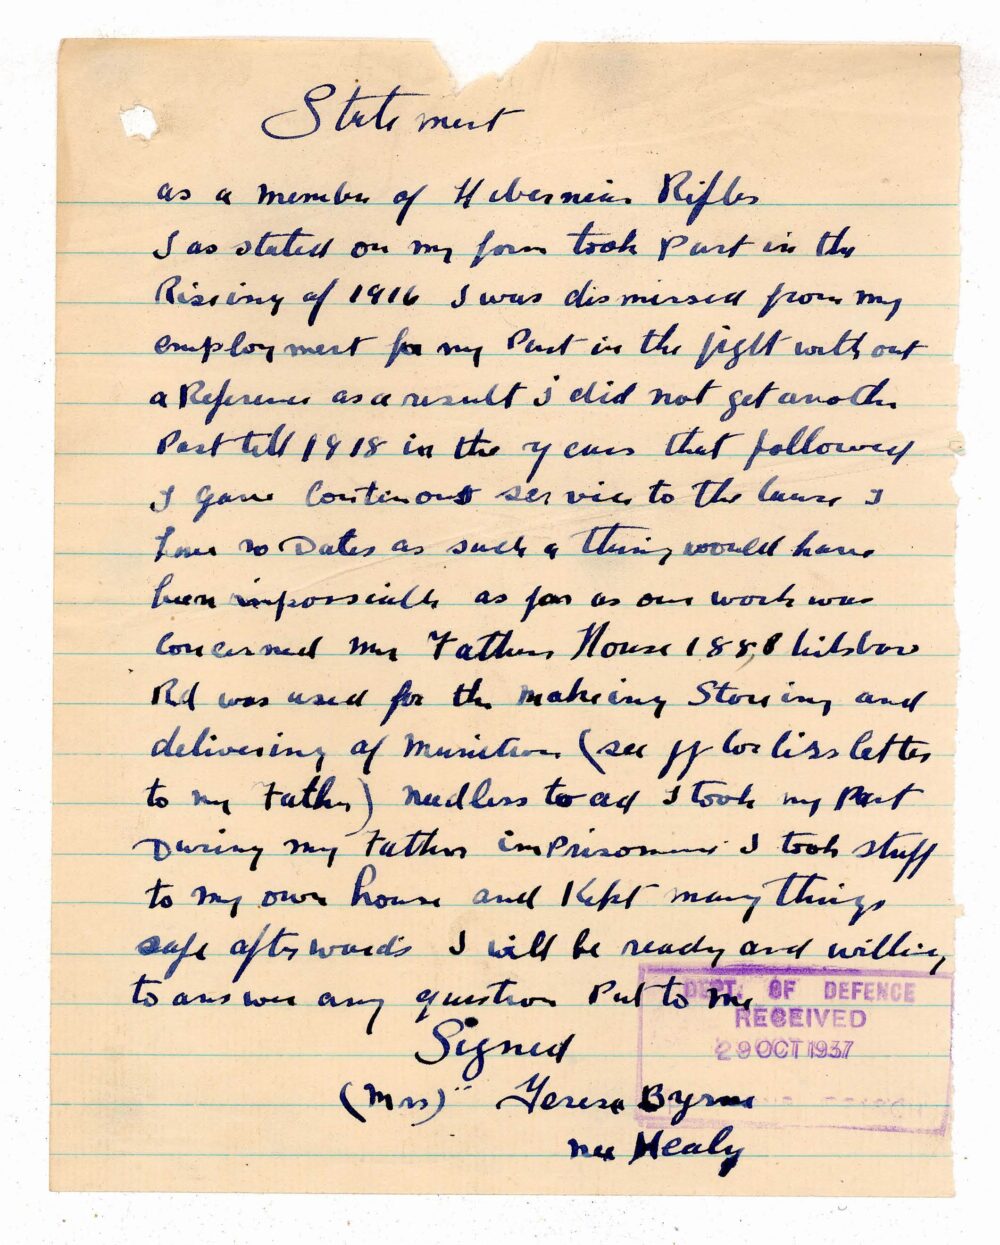 Statement
as a member of Hibernian Rifles
I as stated on my form took Part in the
Riseing of 1916 I was dismissed from my
employment for my Part in the fight without
a Reference as a result I did not get another
Post till 1918 in the years that followed
I gave Continous service to the Cause I
have no Dates as such a thing would have
been impossiable as far as our work was
Concerned my Fathers House 188 Phibsboro
Rd was used for the makeing Storeing and
delivering of Munitions (see letter
to my Father) needless to ad I took my Part
During my Fathers imPrisonment I took stuff
to my own house and Kept many things
safe afterwards I will be ready and willing
to answer any question Put to me
Signed
(Mrs) Teresa Byrne
nee Healy
DEPT. OF DEFENCE
RECEIVED
29 OCT 1937